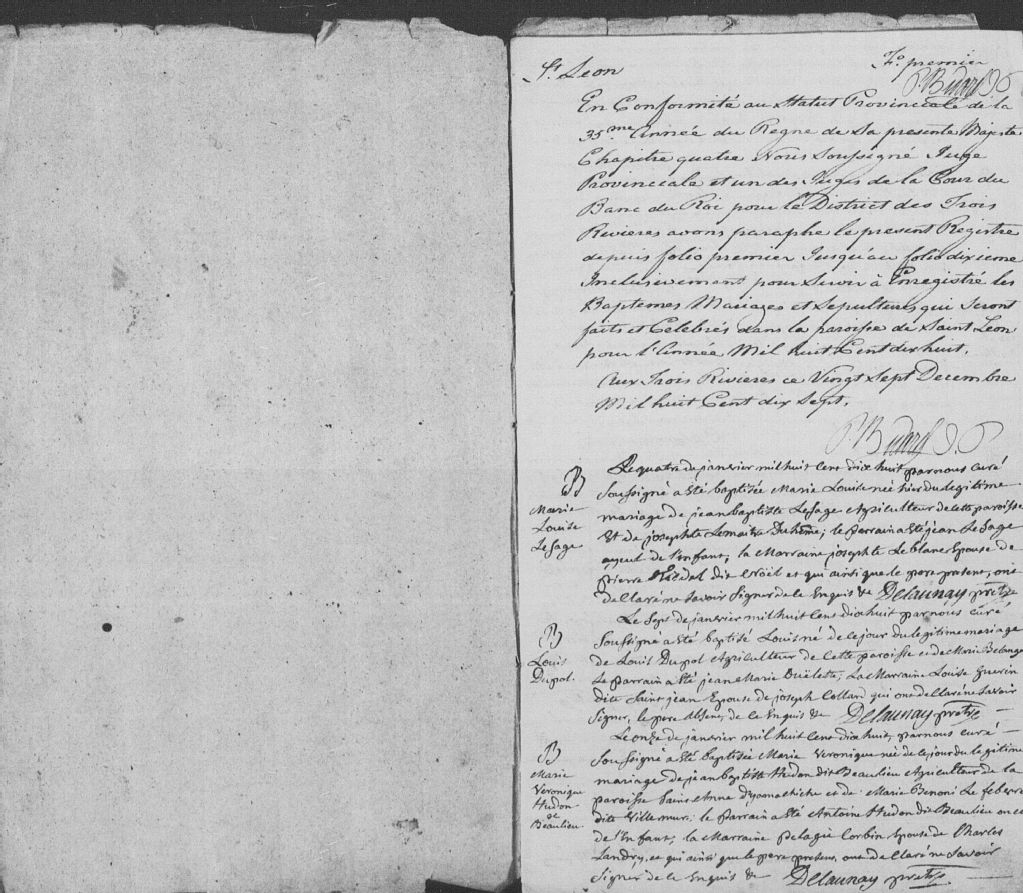 St Leon
Fo. premier
P. Bedard J. P
En Conformité au Statut Provinciale de la
35me Année du Regne de Sa presente Majeste
Chapitre quatre Nous Soussigné Juge
Provinciale et un des Juges de la Cour du
Banc du Roi pour le District des Trois
Rivieres avons paraphé le present Registre
depuis folio premier Jusqu'au folio dixieme
Inclusivement pour Servir à Enregistré les
Baptemes Mariages et Sepultures qui Seront
faits et Celebrés dans la paroisse de Saint Leon
pour l'Année Mil huit Cent dix huit.
Aux Trois Rivieres ce Vingt Sept Decembre
Mil huit Cent dix Sept.
P. Bedard J. P
B
Marie
Louise
Le Sage
Le quatre de janvier mil huit Cens dixhuit par nous Curé
Soussigné a été baptisée Marie Louise née hier du legitime
mariage de jean baptiste Le Sage Agriculteur de cette paroisse
Et de josephte Lemaitre Duhême; le Parrain a été jean Le Sage
ayeul de l'enfant, la Marraine josephte Le blanc Epouse de
pierre dit Noël et qui ainsi que le pere present, ont
declaré ne Savoir Signer de le Enquis & Delaunay ptre
Le Sept de janvier mil huit Cens dixhuit par nous Curé
B
Louis
Dupol.
Soussigné a été baptisé Louis né de ce jour du legitime mariage
de Louis Dupol Agriculteur de Cette paroisse et de Marie Belange
Le Parrain a été jean Marie Ouëlette, La Marraine Louise Guerin
dite Saint jean Epouse de joseph Collard qui ont declaré ne Savoir
Signer, le pere Absent, de le Enquis & Delaunay ptre
Le onze de janvier mil huit Cens dixhuit, par nous Curé
B
Marie
Veronique
Hudon
de
Beaulieu
Soussigné a été baptisée Marie Veronique née de ce jour du legitime
mariage de jean baptiste Hudon dit Beaulieu Agriculteur de la
paroisse Sainte Anne et de Marie Benoni Le febvre
dite Villemur; le Parrain a été Antoine Hudon dit Beaulieu oncle
de l'Enfant, la Marraine Pelagie Corbin Epouse de Charles
Landry, et qui ainsi que le pere present, ont declaré ne Savoir
Signer de le Enquis & Delaunay ptre